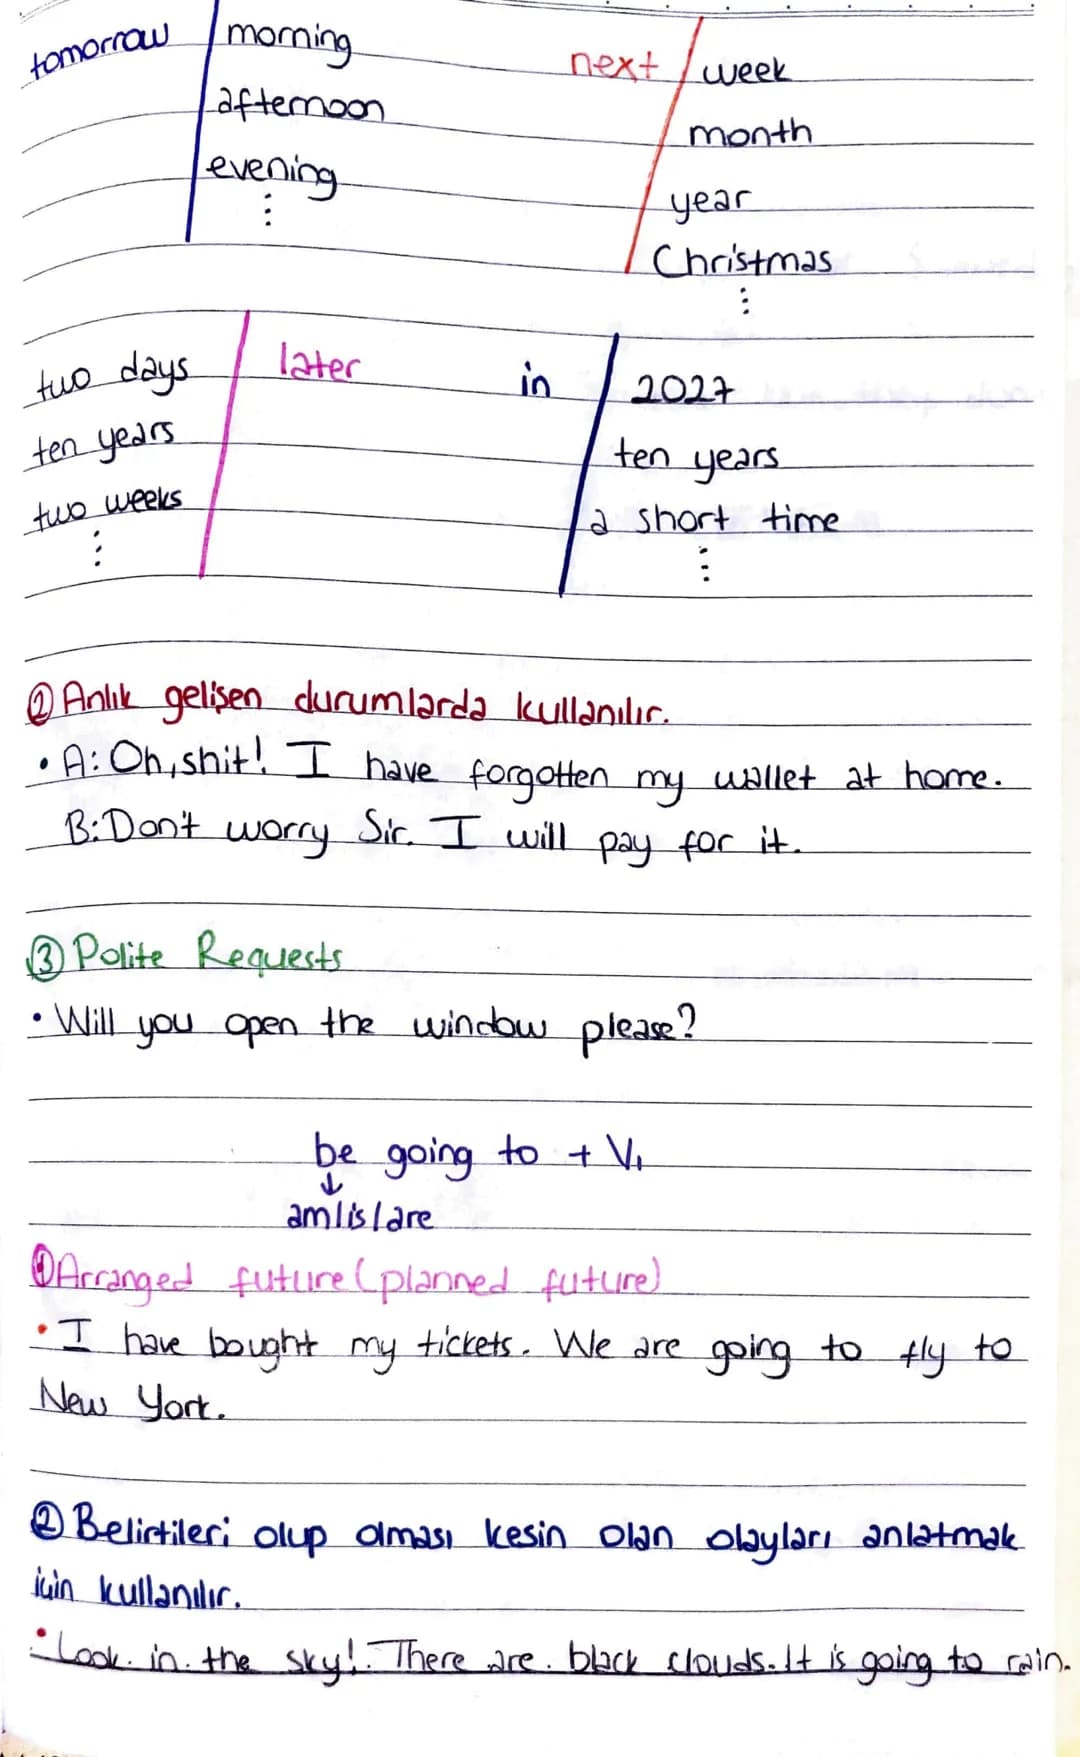 tomorrow morning
afternoon
evening
⋮
next week
month
year
Christmas
⋮
two days later
ten years
two weeks
⋮
in 2027
ten years
a short time
⋮
② Anlık gelişen durumlarda kullanılır.
• A: Oh, shit! I have forgotten my wallet at home.
B: Don't worry Sir. I will pay for it.
③ Polite Requests
• Will you open the window please?
be going to + V₁
↓
am/is/are
① Arranged future (planned future)
• I have bought my tickets. We are going to fly to
New York.
② Belirtileri olup olması kesin olan olayları anlatmak
için kullanılır.
• Look in the sky! There are black clouds. It is going to rain.